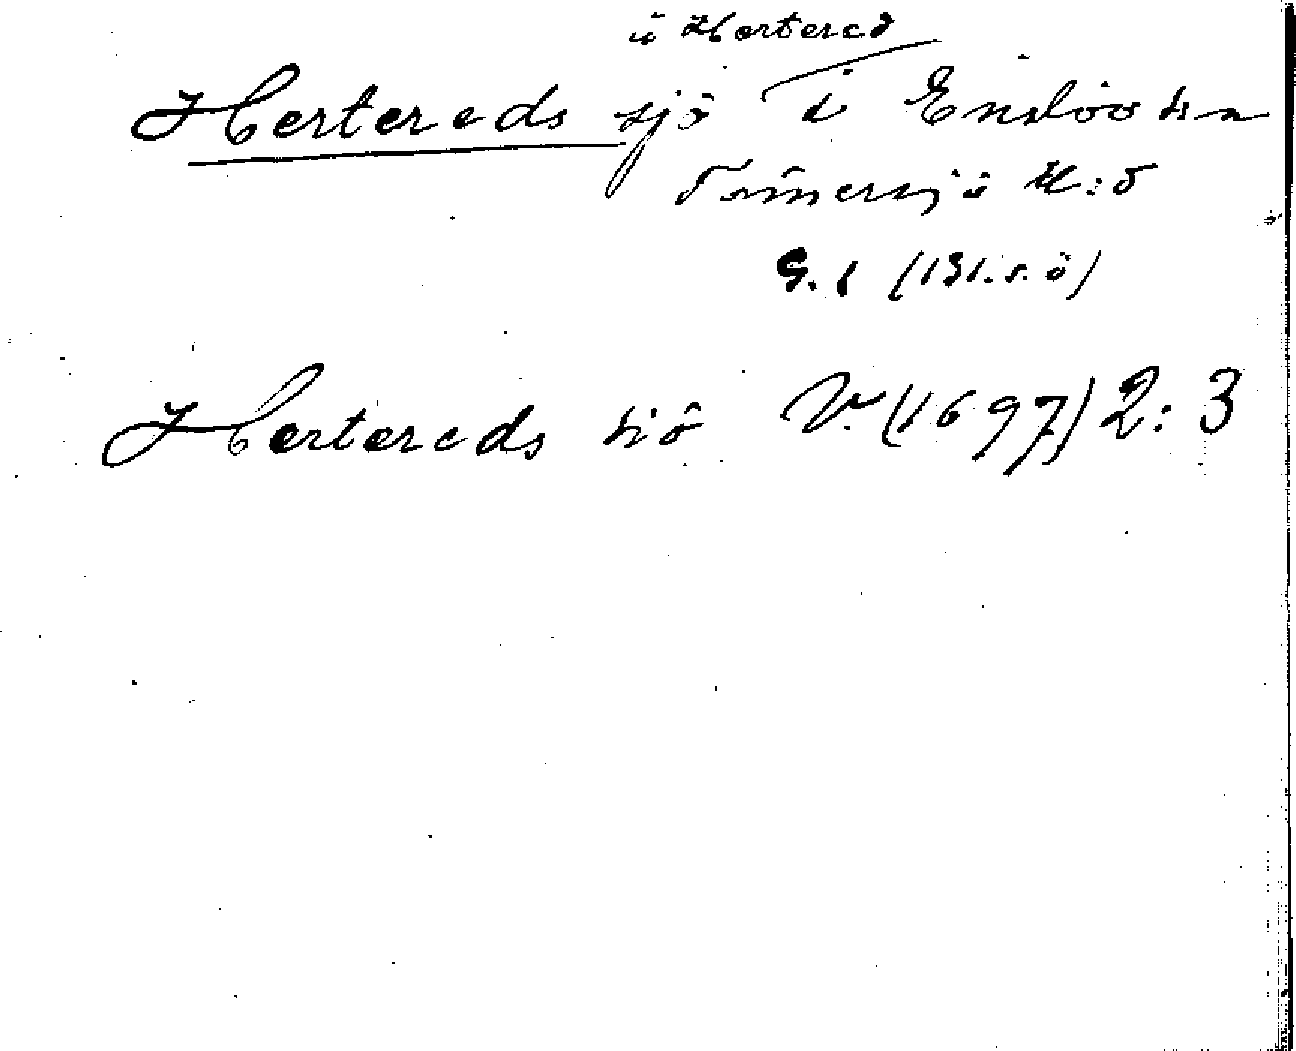 ä Hertered
Hertereds sjö i Enslövs sn
Tönnersjö H:d
G. 1 (131. s. ö)
Hertereds siö V. (1697) 2:3